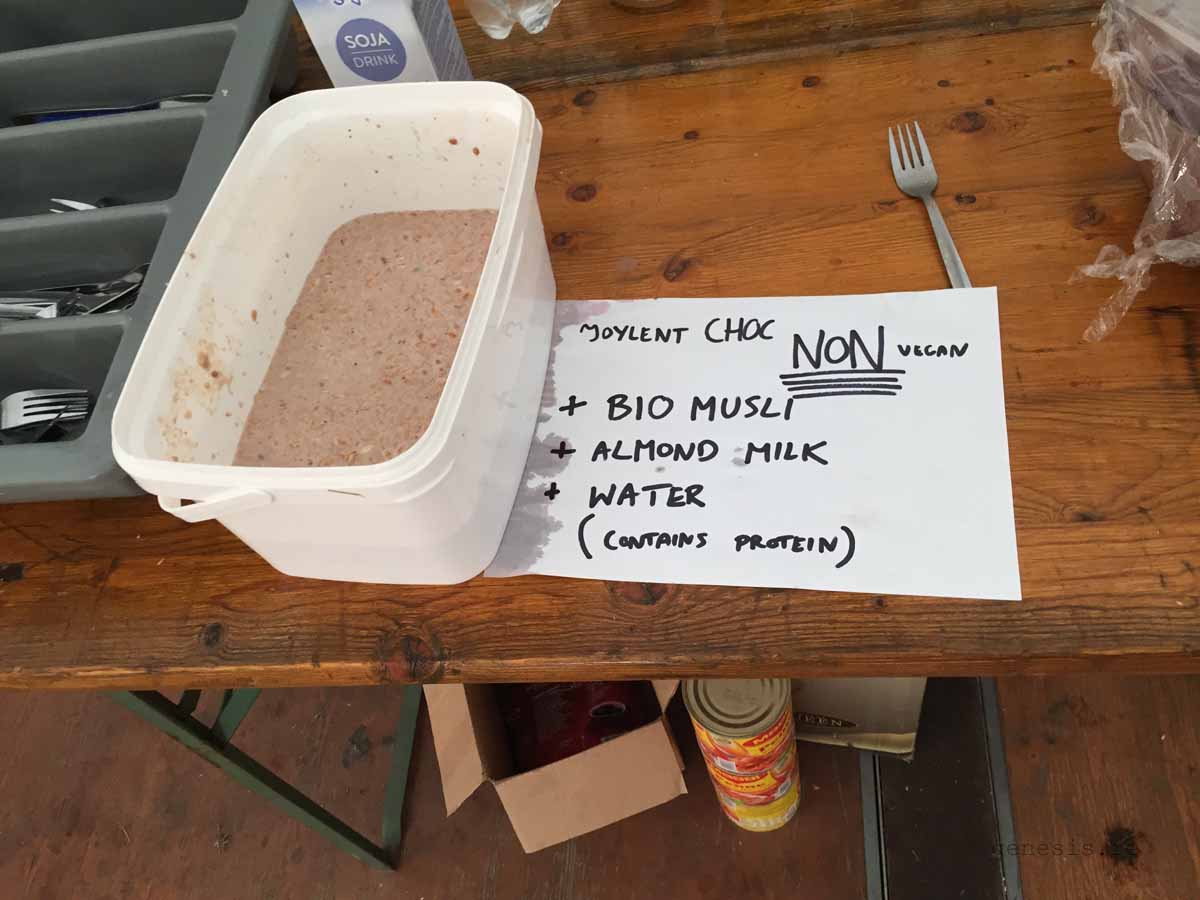 SOJA
DRINK
JOYLENT CHOC NON VEGAN
+ BIO MUSLI
+ ALMOND MILK
+ WATER
(CONTAINS PROTEIN)